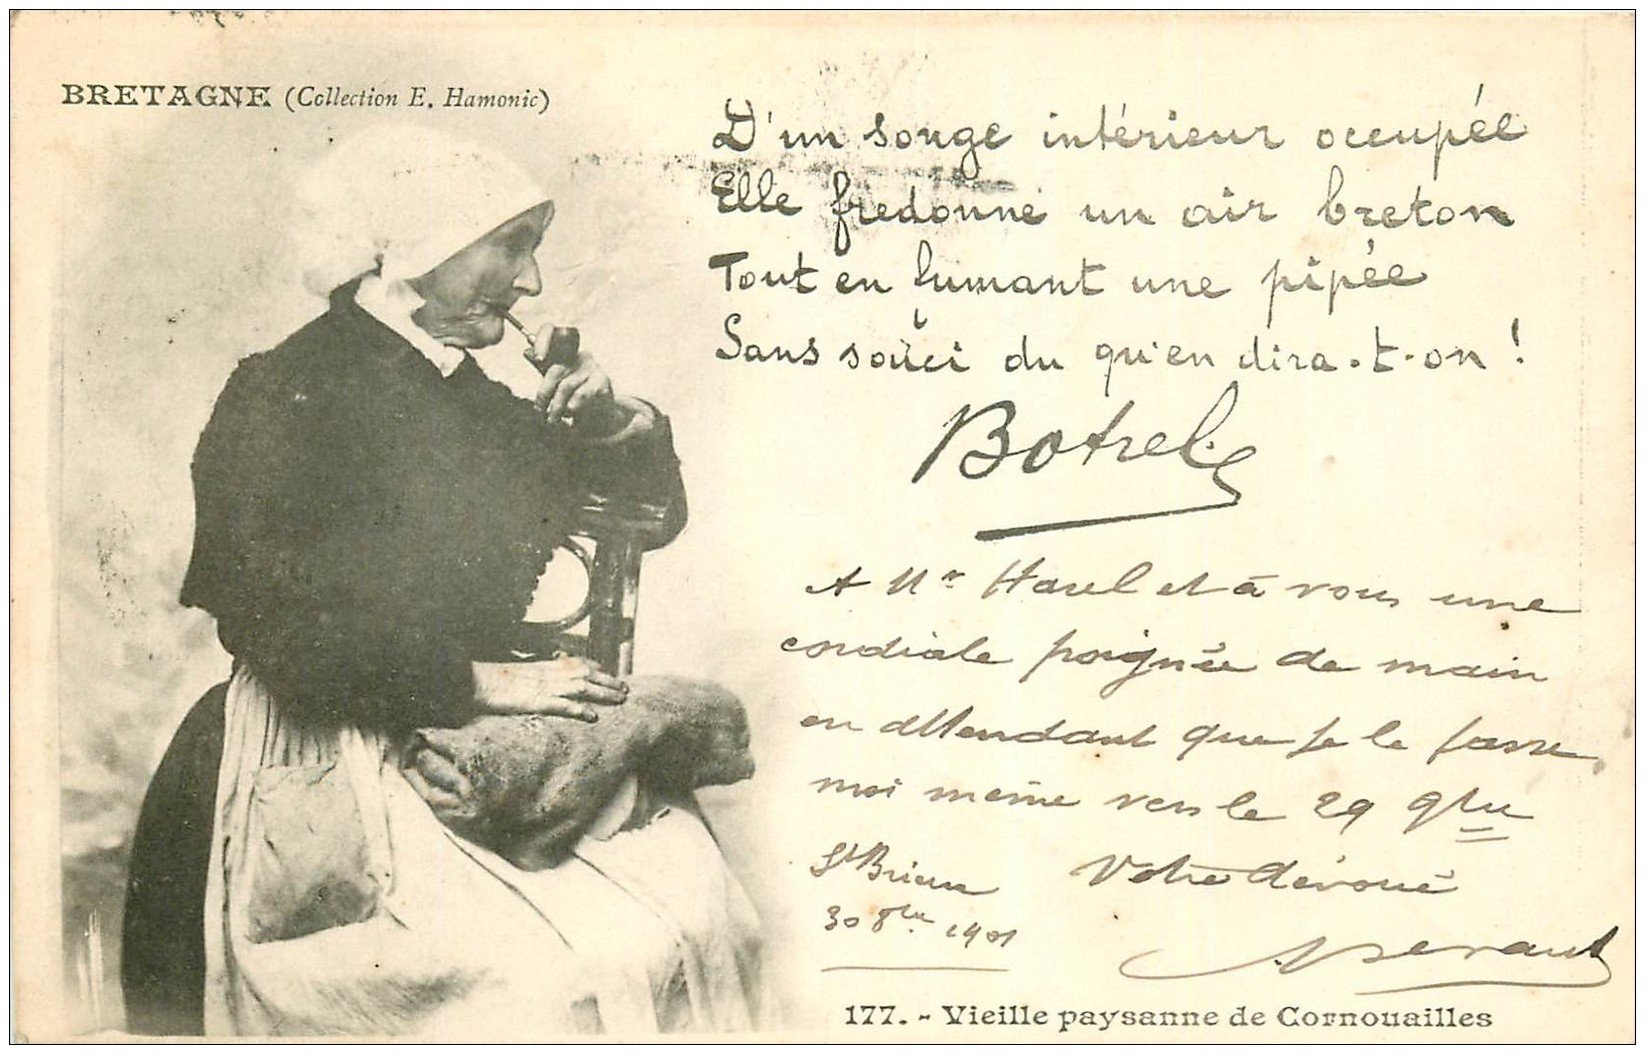 BRETAGNE (Collection E. Hamonic)
D'un songe intérieur occupée
Elle fredonne un air breton
Tout en fumant une pipée
Sans souci du qu'en dira-t-on !
Botrel
A Mr Harel et à vous une
cordiale poignée de main
en attendant que je le fasse
moi même vers le 29 9bre
St Brieuc
30 8bre 1901
Votre dévoué
177. - Vieille paysanne de Cornouailles